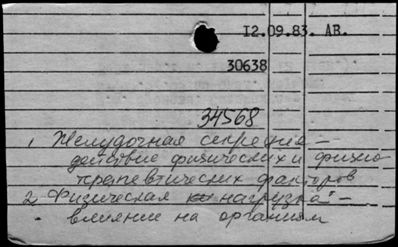 12.09.83. АВ.
30638
34568
1. Желудочная секреция -
действие физических и физио
терапевтических факторов
2. Физическая нагрузка -
влияние на организм